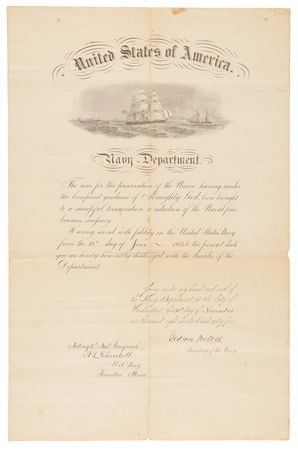 United States of America.
Navy Department.
The war for the preservation of the Union having under
the beneficent guidance of Almighty God been brought
to a successful termination a reduction of the Naval force
becomes necessary.
Having served with fidelity in the United States Navy
from the day of June to the present date
you are hereby honorably discharged with the thanks of the
Department.
Given under my hand and seal of
the Navy Department at the City of
Washington this day of November
one thousand eight hundred and sixty five
Gideon Welles
Secretary of the Navy
Acting Asst. Engineer
Churchill
U.S. Navy
Mass